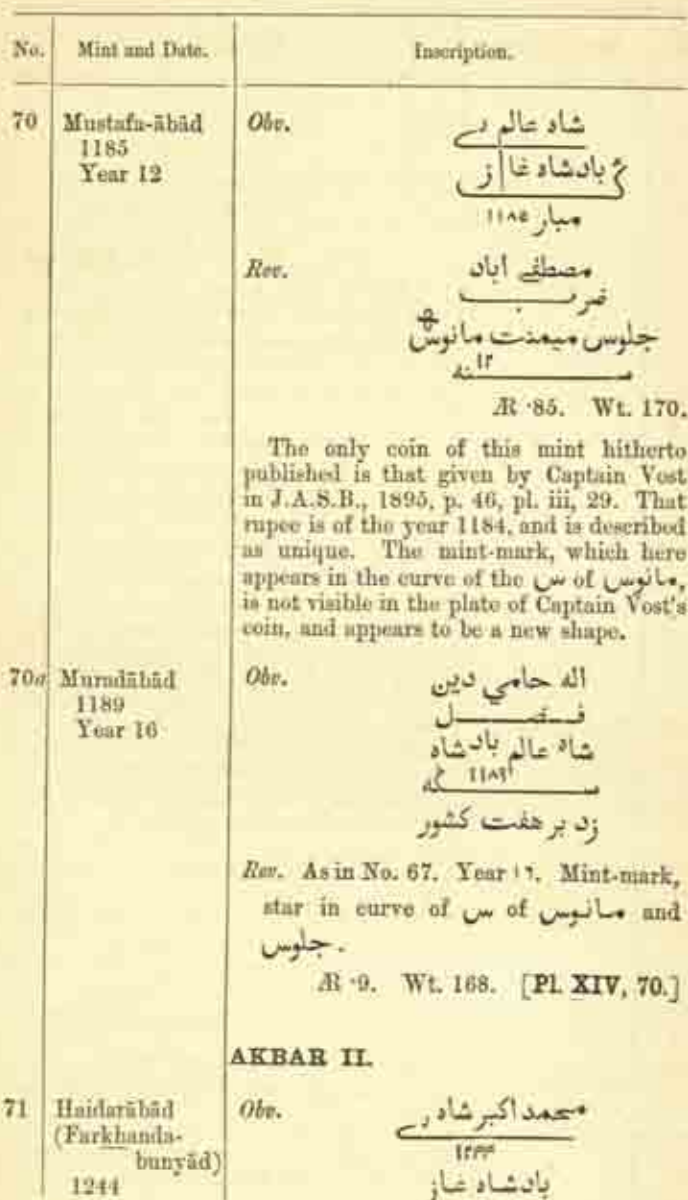 No. Mint and Date. Inscription.
70 Mustafa-ābād Obv. شاه عالم ے
1185 بادشاه غاز
Year 12 مبار ۱۱۸۵
Rev. مصطفے اباد
ضرب
جلوس میمنت مانوس
۱۲
سنه
Æ ·85. Wt. 170.
The only coin of this mint hitherto
published is that given by Captain Vost
in J.A.S.B., 1895, p. 46, pl. iii, 29. That
rupee is of the year 1184, and is described
as unique. The mint-mark, which here
appears in the curve of the س of مانوس,
is not visible in the plate of Captain Vost's
coin, and appears to be a new shape.
70a Muradābād Obv. اله حامي دين
1189 فضل
Year 16 شاه عالم بادشاه
۱۱۸۹
سكه
زد بر هفت كشور
Rev. As in No. 67. Year ۱۶. Mint-mark,
star in curve of س of مانوس and
جلوس.
Æ ·9. Wt. 168. [Pl. XIV, 70.]
AKBAR II.
71 Haidarābād Obv. محمد اكبر شاه ے
(Farkhanda- ۱۲۴۴
bunyād)
1244 بادشاه غاز